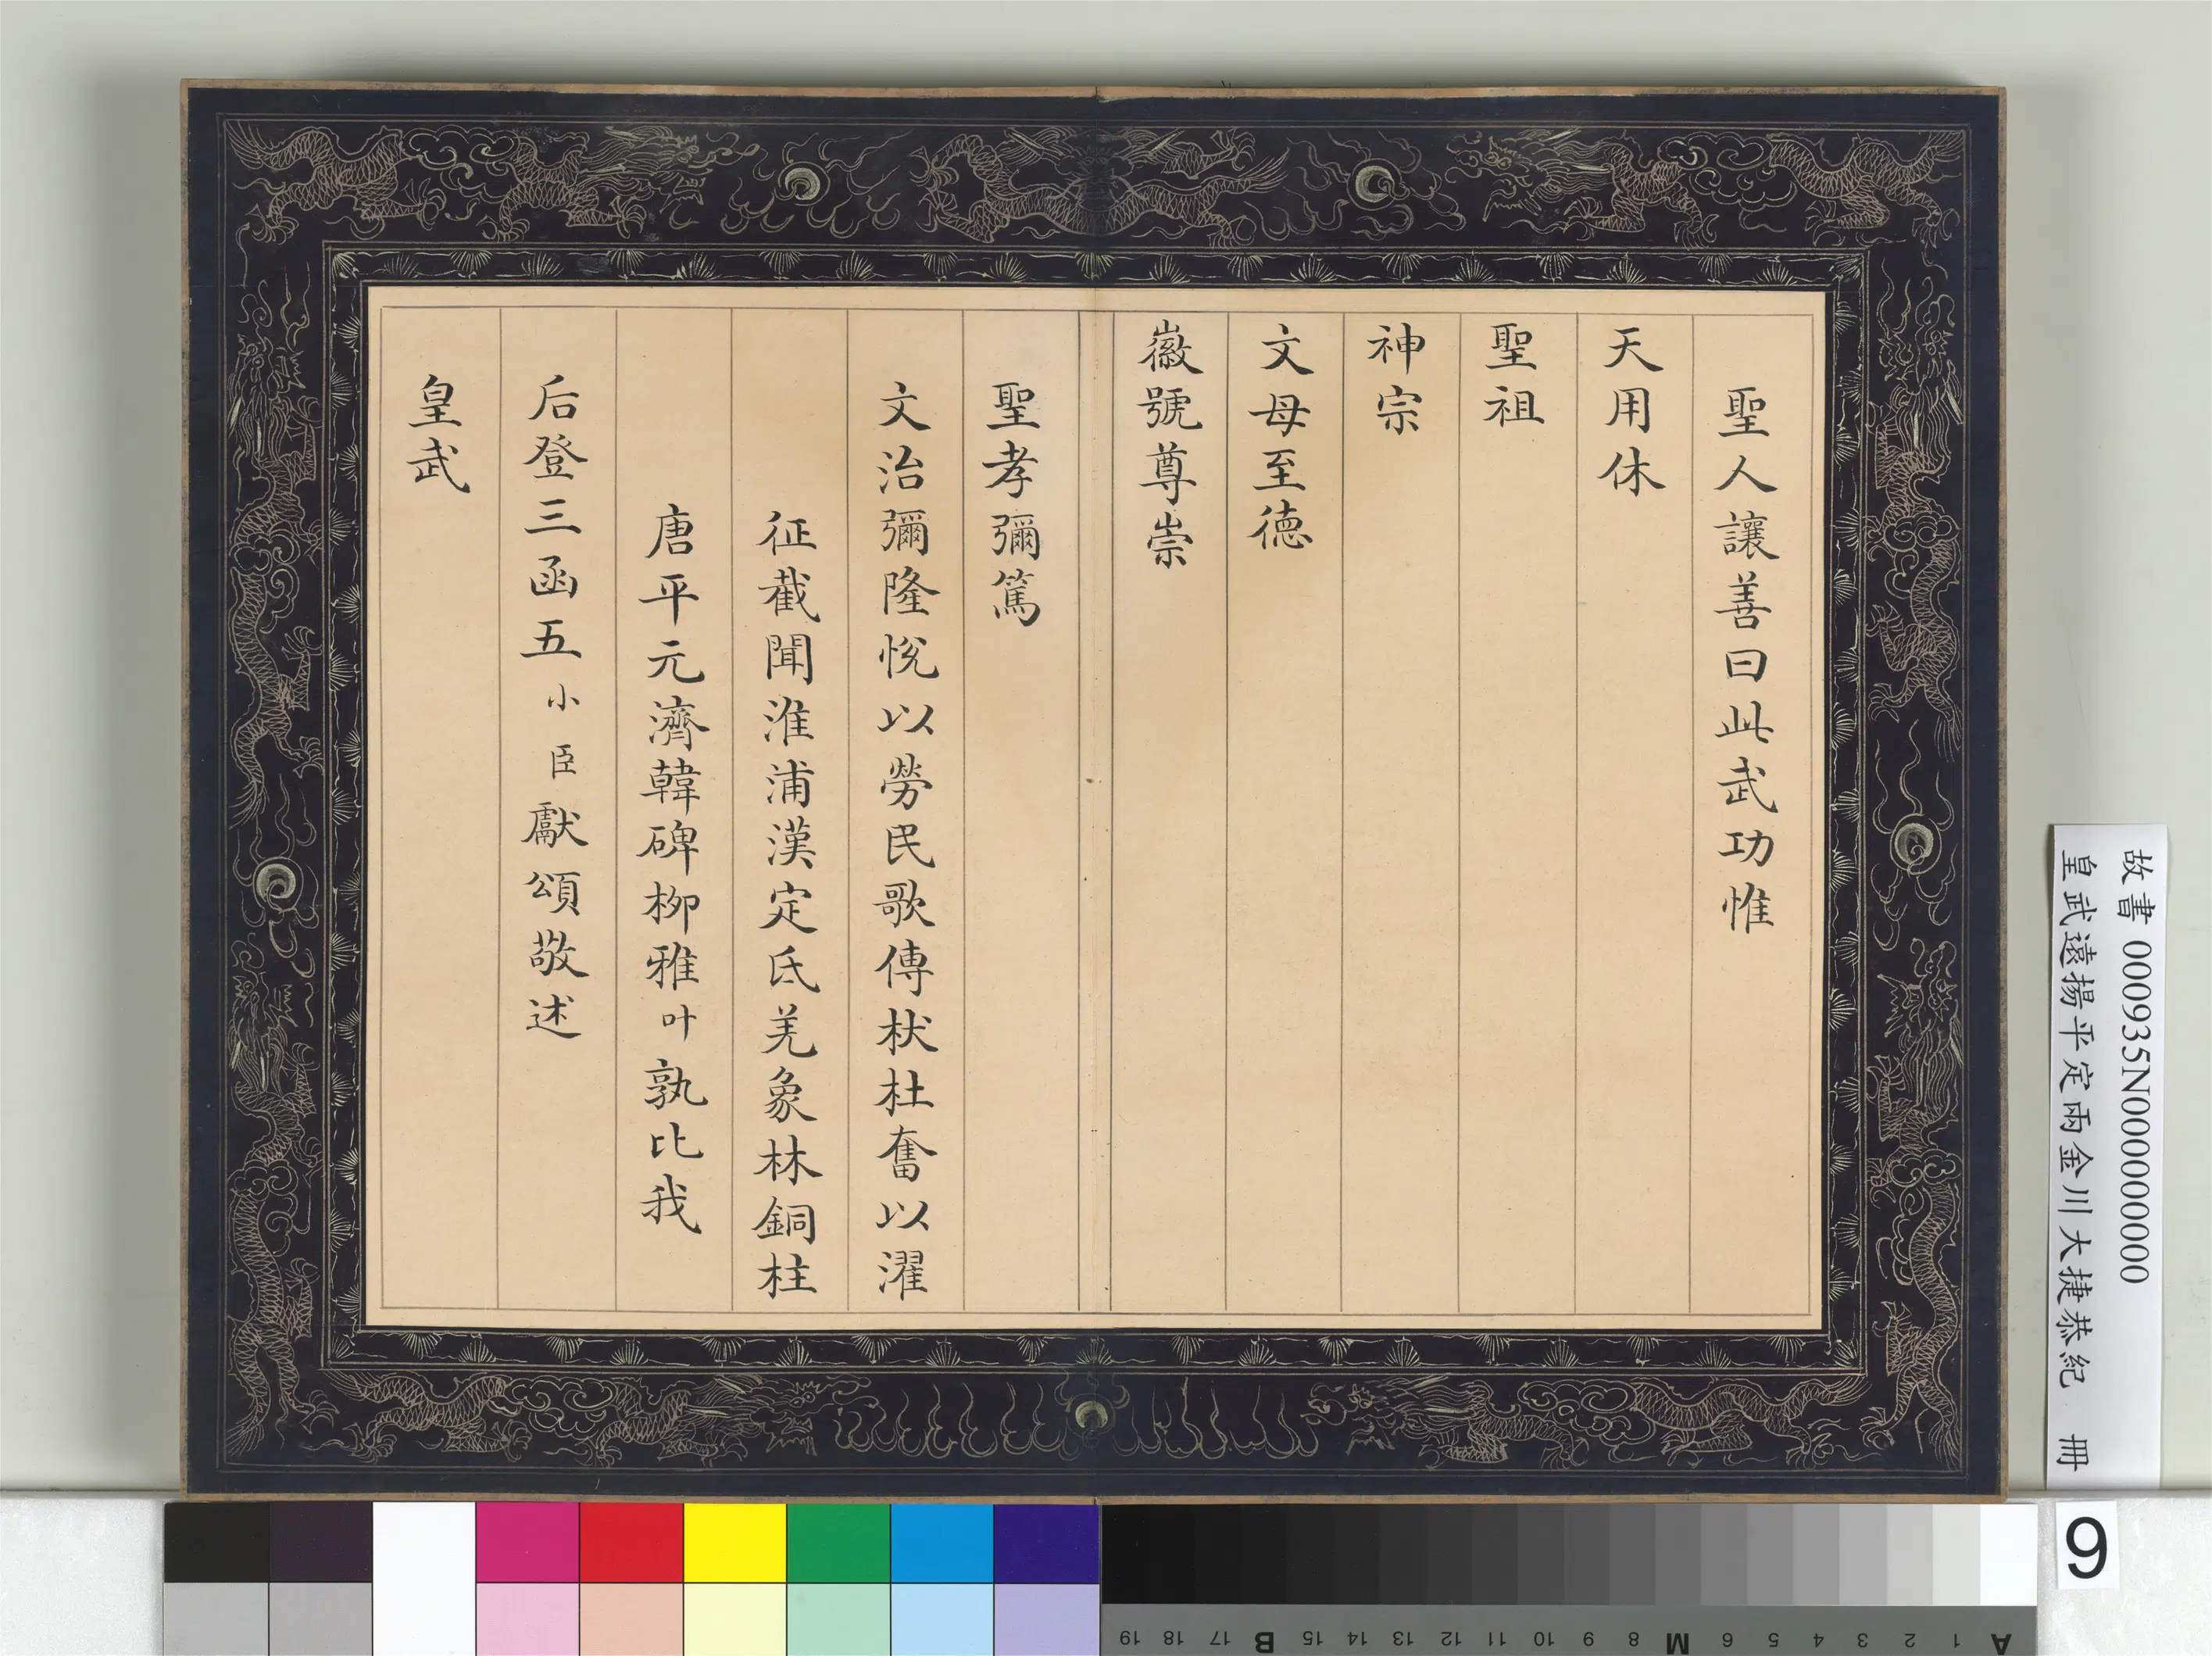 聖人讓善曰此武功惟
天用休
聖祖
神宗
文母至德
徽號尊崇
聖孝彌篤
文治彌隆悅以勞民歌傳杕杜奮以濯
征截聞淮浦漢定氐羌象林銅柱
唐平元濟韓碑柳雅叶孰比我
后登三函五小臣獻頌敬述
皇武
故書 000935N000000000
皇武遠揚平定兩金川大捷恭紀 冊
9
A 1 2 3 4 5 6 M 8 9 10 11 12 13 14 15 B 17 18 19